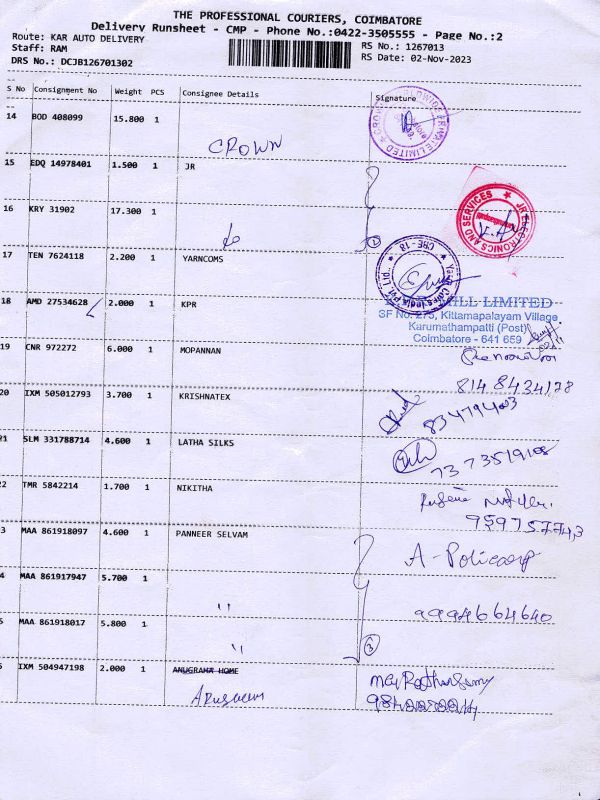 THE PROFESSIONAL COURIERS, COIMBATORE
Delivery Runsheet - CMP - Phone No.:0422-3505555 - Page No.:2
Route: KAR AUTO DELIVERY RS No.: 1267013
Staff: RAM RS Date: 02-Nov-2023
DRS No.: DCJB126701302
S No Consignment No Weight PCS Consignee Details Signature
14 BOD 408099 15.800 1
CROWN
15 EDQ 14978401 1.500 1 JR
JR ELECTRONICS AND SERVICES
16 KRY 31902 17.300 1
17 TEN 7624118 2.200 1 YARNCOMS
CBE-18
18 AMD 27534628 2.000 1 KPR MILL LIMITED
SF No. 273, Kittampalayam Village
Karumathampatti (Post)
Coimbatore - 641 659
19 CNR 972272 6.000 1 MOPANNAN
8148434178
20 IXM 505012793 3.700 1 KRISHNATEX
21 SLM 331788714 4.600 1 LATHA SILKS
22 TMR 5842214 1.700 1 NIKITHA
3 MAA 861918097 4.600 1 PANNEER SELVAM
4 MAA 861917947 5.700 1 "
9994664640
5 MAA 861918017 5.800 1 "
3
6 IXM 504947198 2.000 1 ANUGRAHA HOME